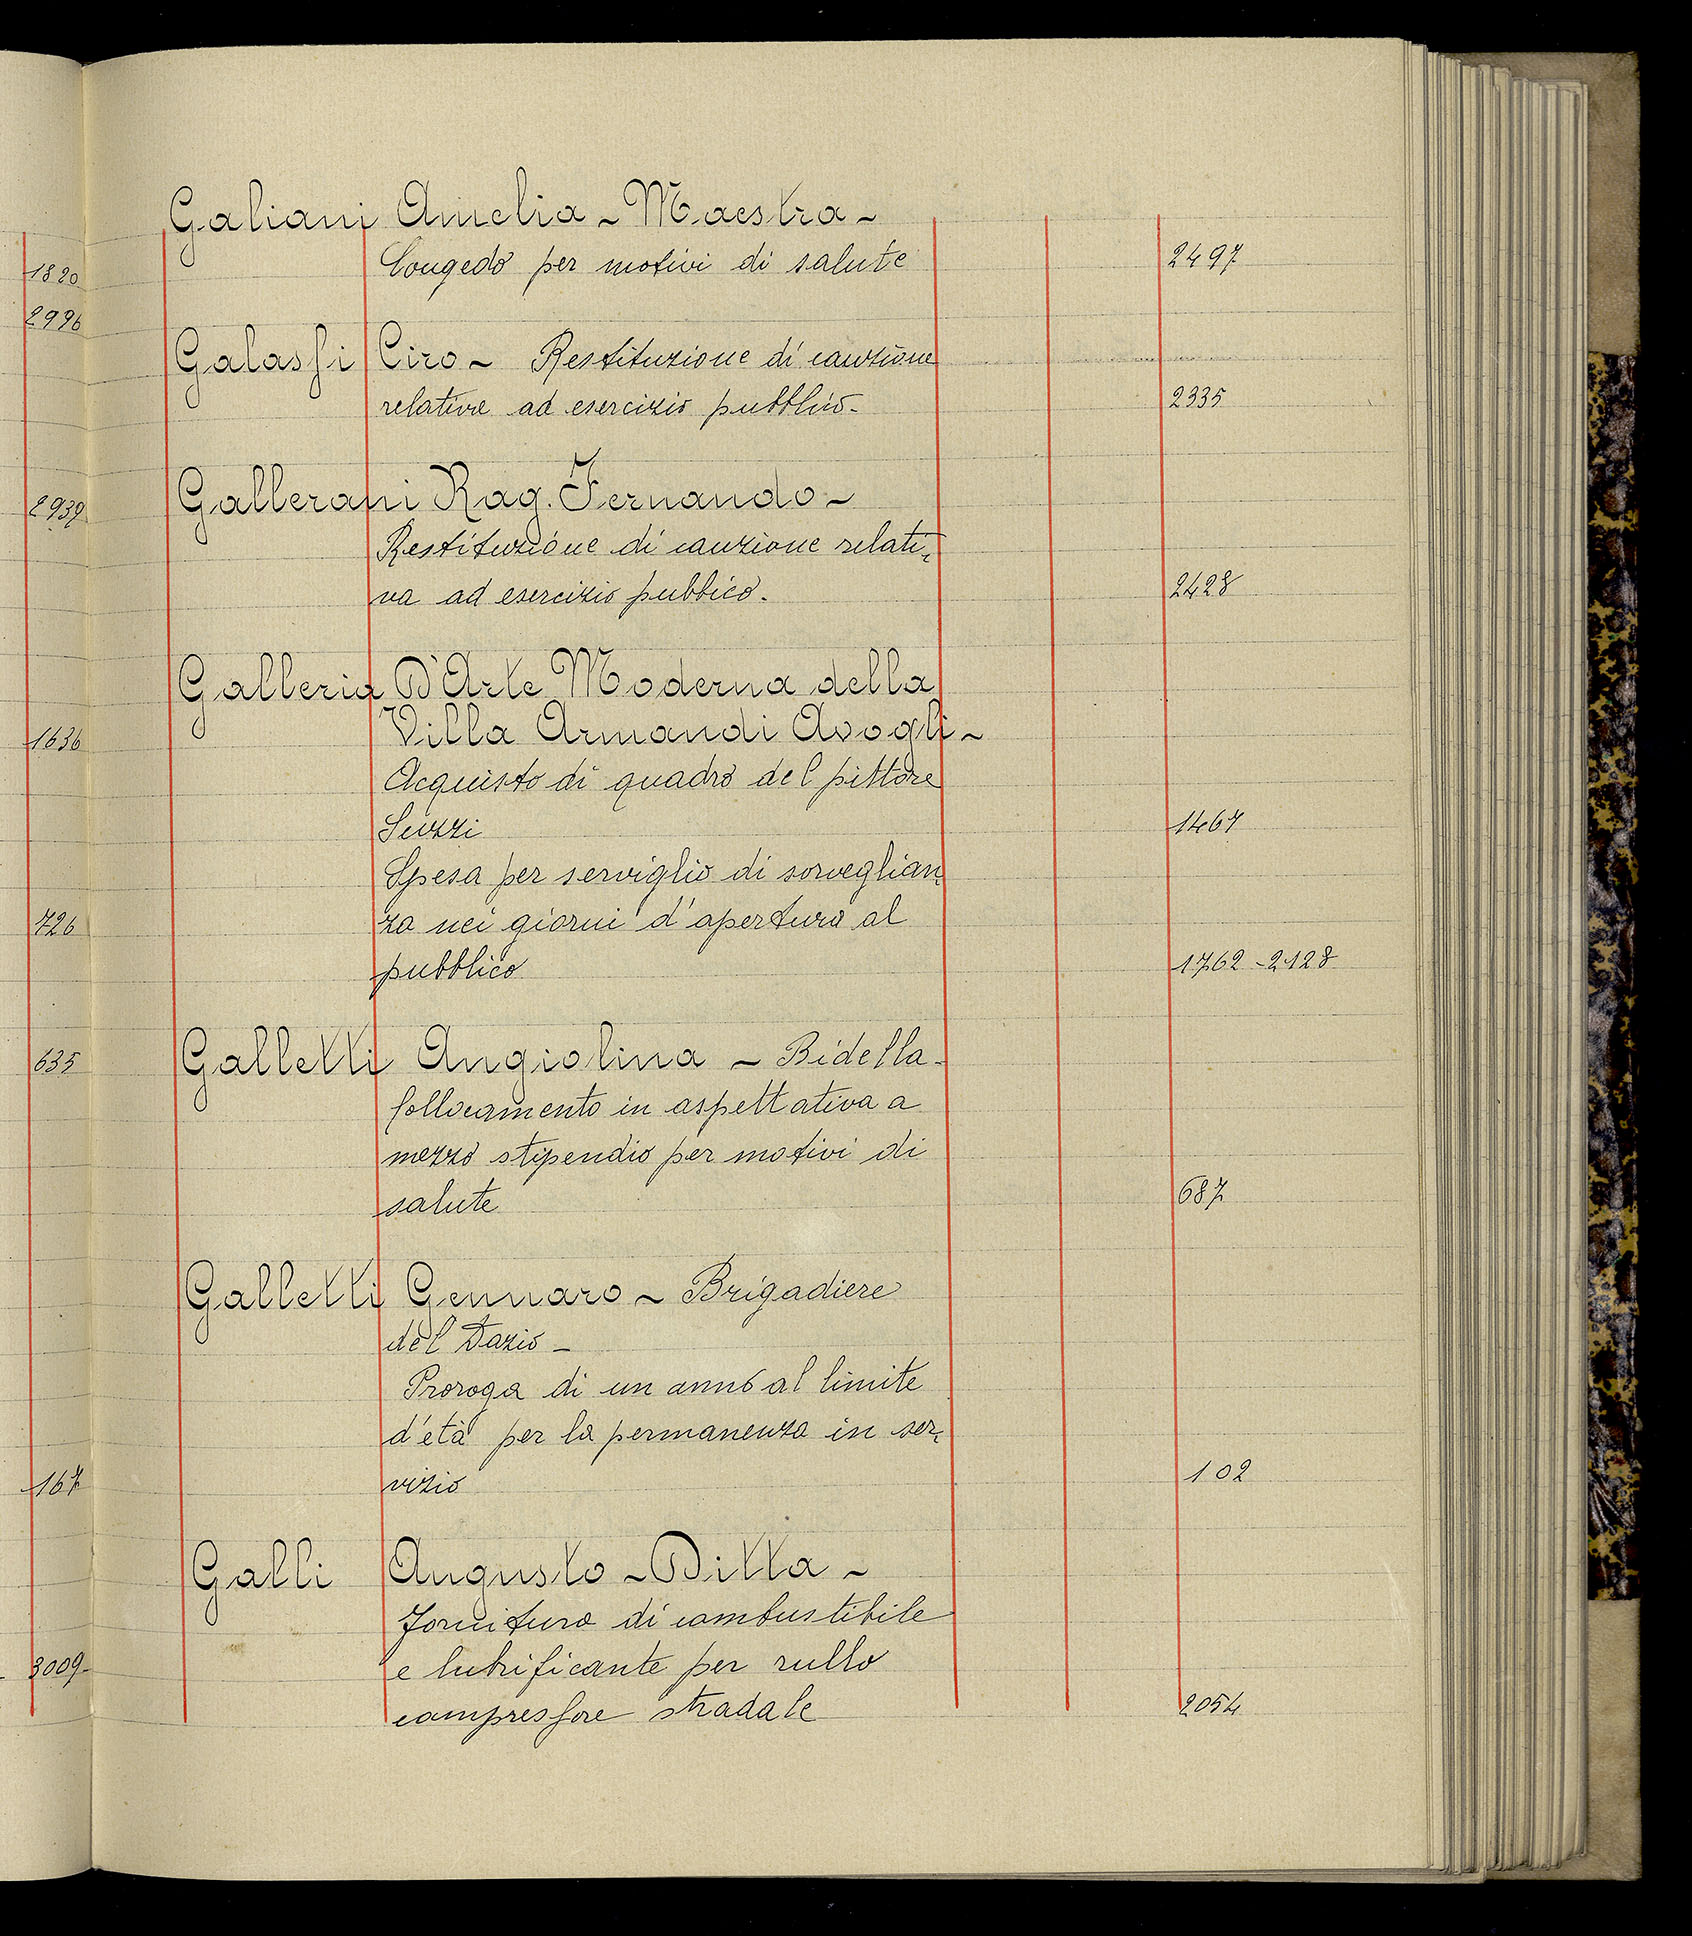 1820
2996
2939
1636
726
635
167
3009-
Galiani Amelia - Maestra -
Congedo per motivi di salute 2497
Galassi Ciro - Restituzione di cauzione
relativa ad esercizio pubblico - 2335
Gallerani Rag. Fernando -
Restituzione di cauzione relati-
va ad esercizio pubblico. 2428
Galleria D'Arte Moderna della
Villa Armandi Avogli -
Acquisto di quadro del pittore
Suzzi 1467
Spesa per serviglio di sorveglian-
za nei giorni d'apertura al
pubblico 1762 - 2128
Galletti Angiolina - Bidella -
Collocamento in aspettativa a
mezzo stipendio per motivi di
salute 687
Galletti Gennaro - Brigadiere
del Dazio -
Proroga di un anno al limite
d'età per la permanenza in ser-
vizio 102
Galli Augusto - Ditta -
Fornitura di combustibile
e lubrificante per rullo
compressore stradale 2054